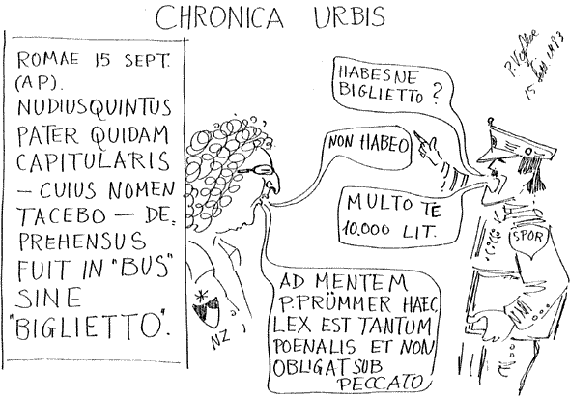 CHRONICA URBIS
ROMAE 15 SEPT.
(AP).
NUDIUSQUINTUS
PATER QUIDAM
CAPITULARIS
— CUIUS NOMEN
TACEBO — DE,
PREHENSUS
FUIT IN "BUS"
SINE
"BIGLIETTO".
HABESNE
BIGLIETTO?
NON HABEO
MULTO TE
10.000 LIT.
AD MENTEM
P. PRÜMMER HAEC
LEX EST TANTUM
POENALIS ET NON
OBLIGAT SUB
PECCATO
NZ
SPQR
15